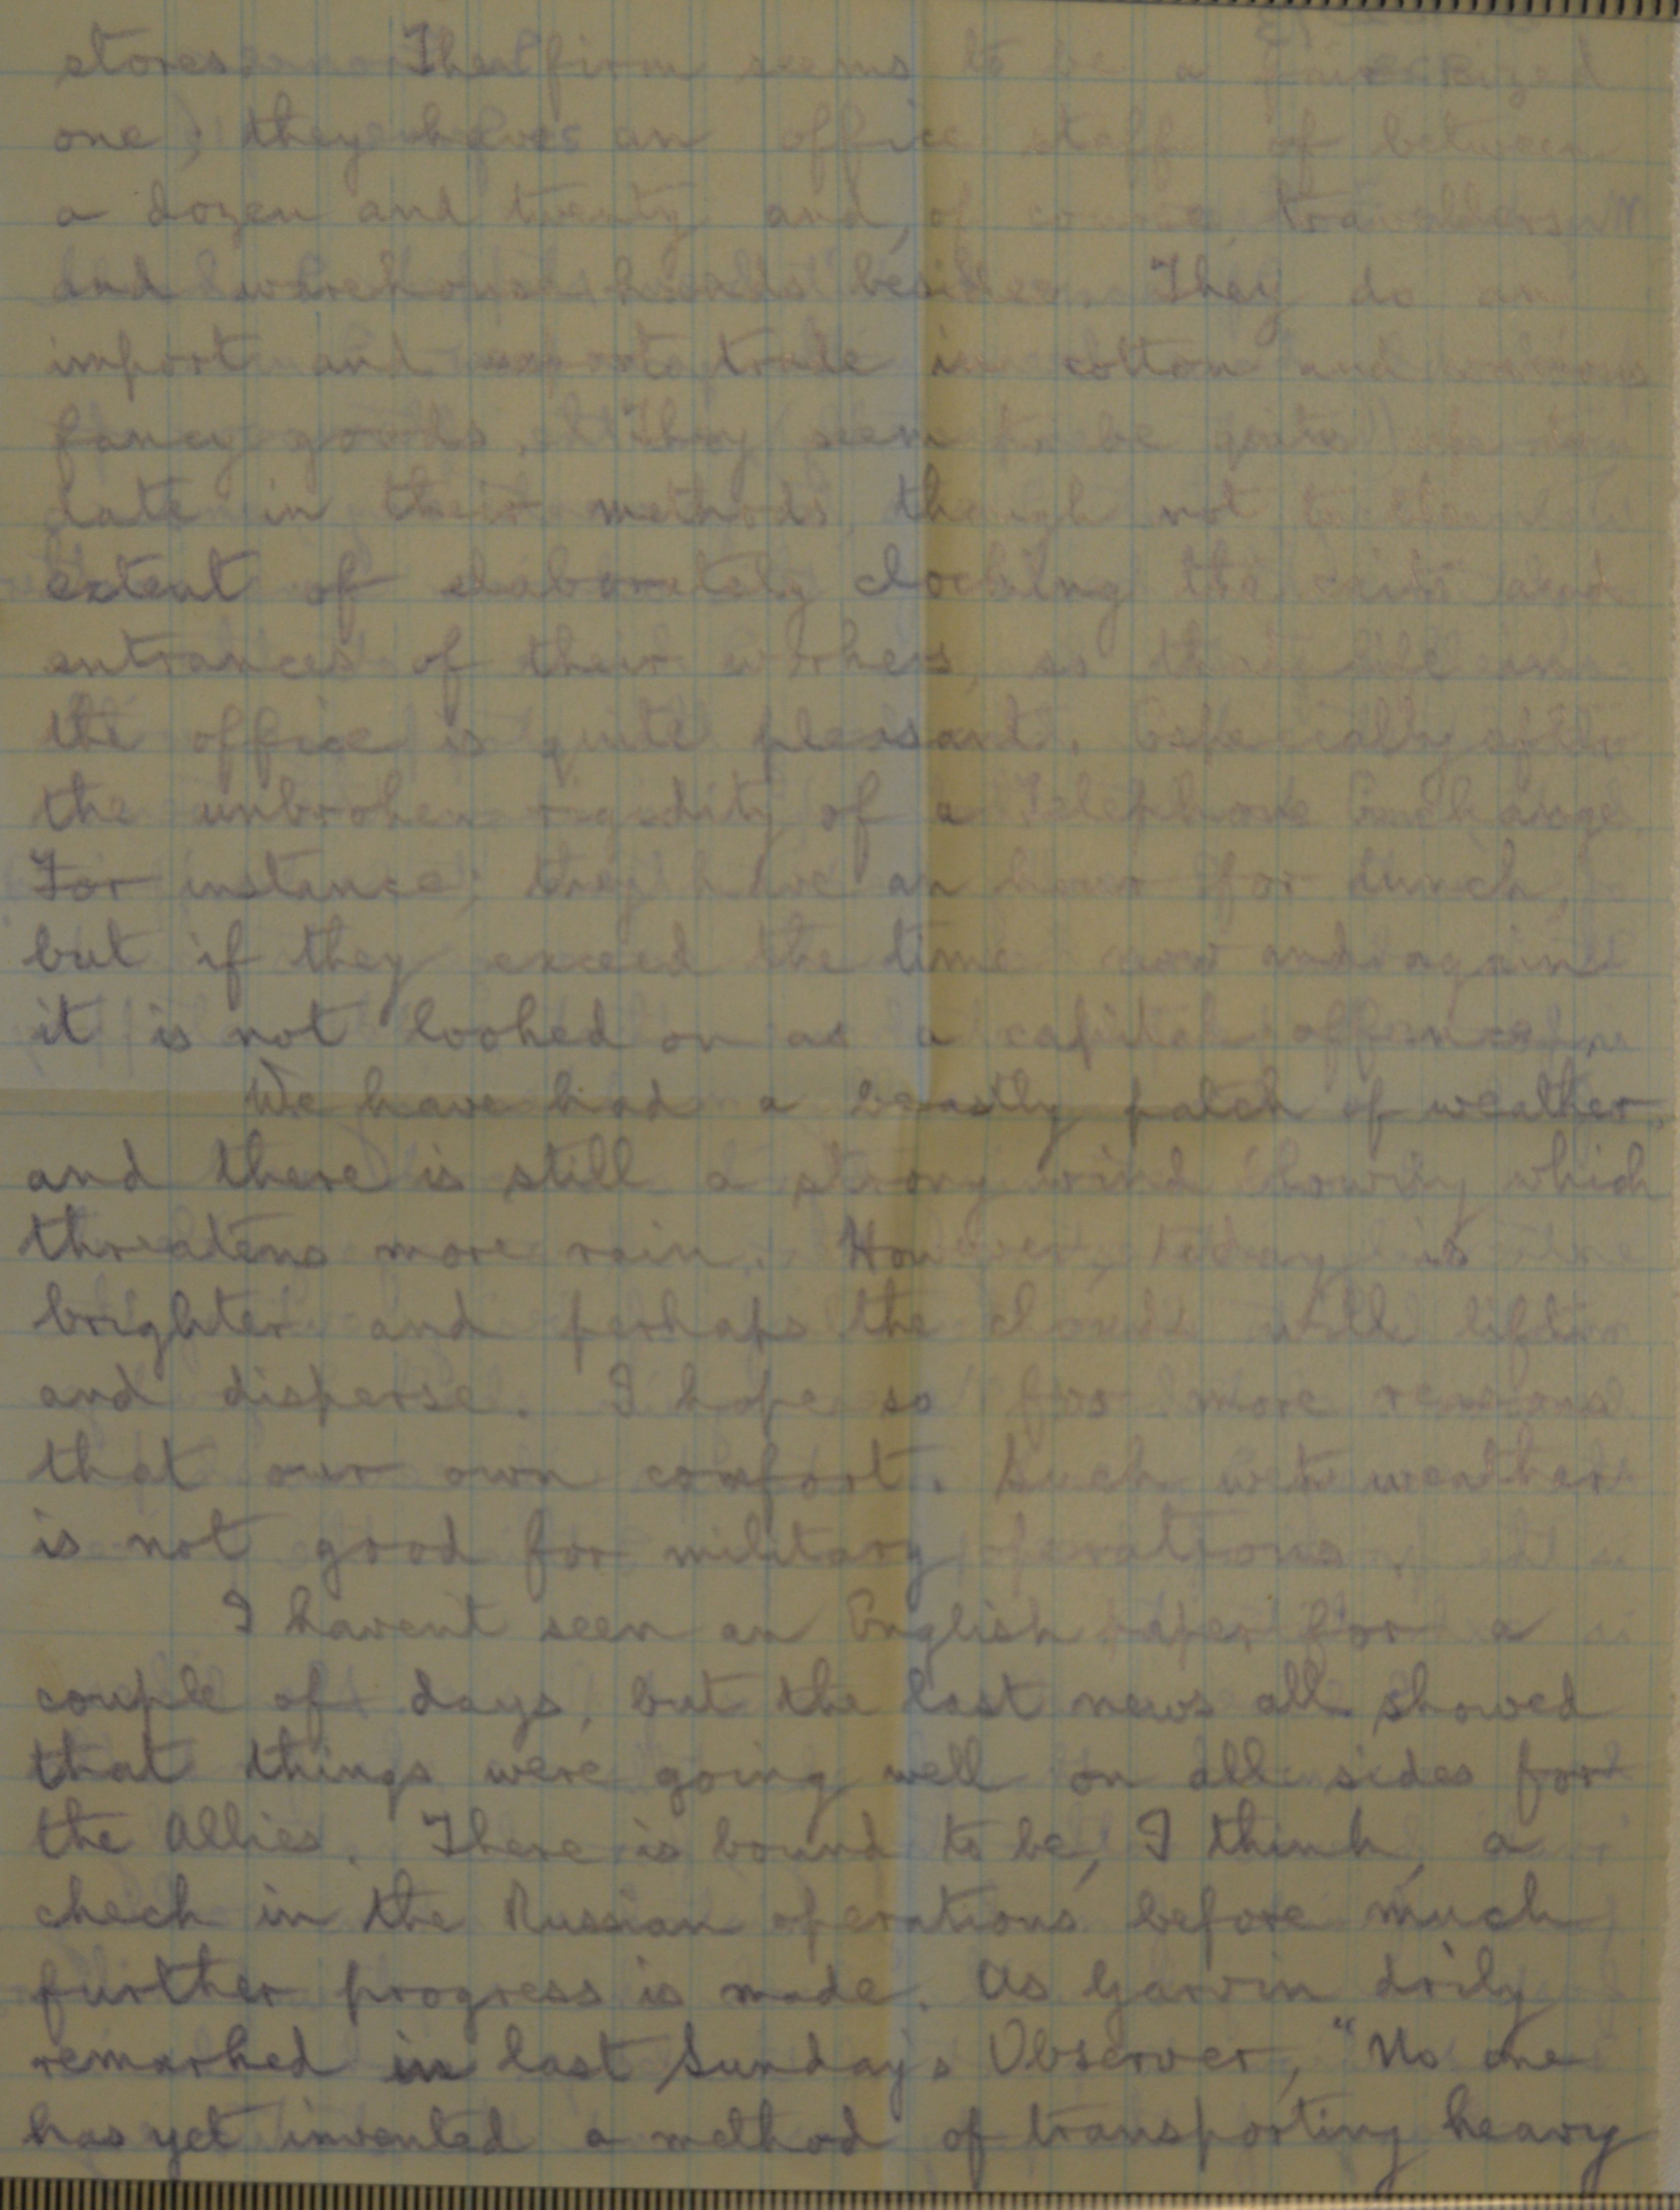 stores. The firm seems to be a sized
one; they have an office staff of between
a dozen and twenty and, of course, travellers
and warehouse hands besides. They do an
import and export trade in cotton and various
fancy goods. They seem to be quite up to
date in their methods, though not to the
extent of elaborately clocking the exits and
entrances of their workers, so
the office is quite pleasant. Especially after
the unbroken rigidity of a Telephone Exchange.
For instance; they have an hour for lunch,
but if they exceed the time now and again
it is not looked on as a capital offence.
We have had a beastly patch of weather,
and there is still a strong wind which
threatens more rain. However, today is
brighter and perhaps the clouds will lift
and disperse. I hope so for more reasons
that our own comfort. Such wet weather
is not good for military operations.
I havent seen an English paper for a
couple of days, but the last news all showed
that things were going well on all sides for
the Allies. There is bound to be, I think, a
check in the Russian operations before much
further progress is made. As Garvin drily
remarked in last Sunday's Observer, "No one
has yet invented a method of transporting heavy